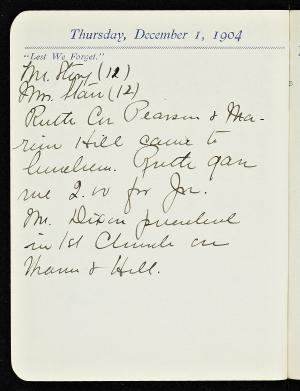 Thursday, December 1, 1904
"Lest We Forget."
Mr. (12)
Mrs. Starr (12)
Ruth Pearson & Ma-
rion Hill came to
luncheon. Ruth gave
me 2.00 for Jr.
Mr. Dixon preached
in 1st Church on
Mann & Hill.